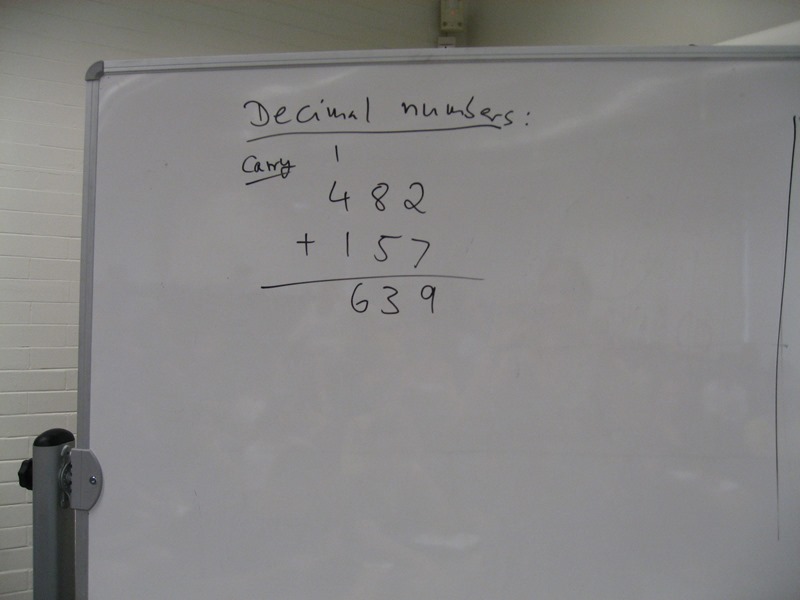 Decimal numbers:
Carry 1
482
+ 157
639